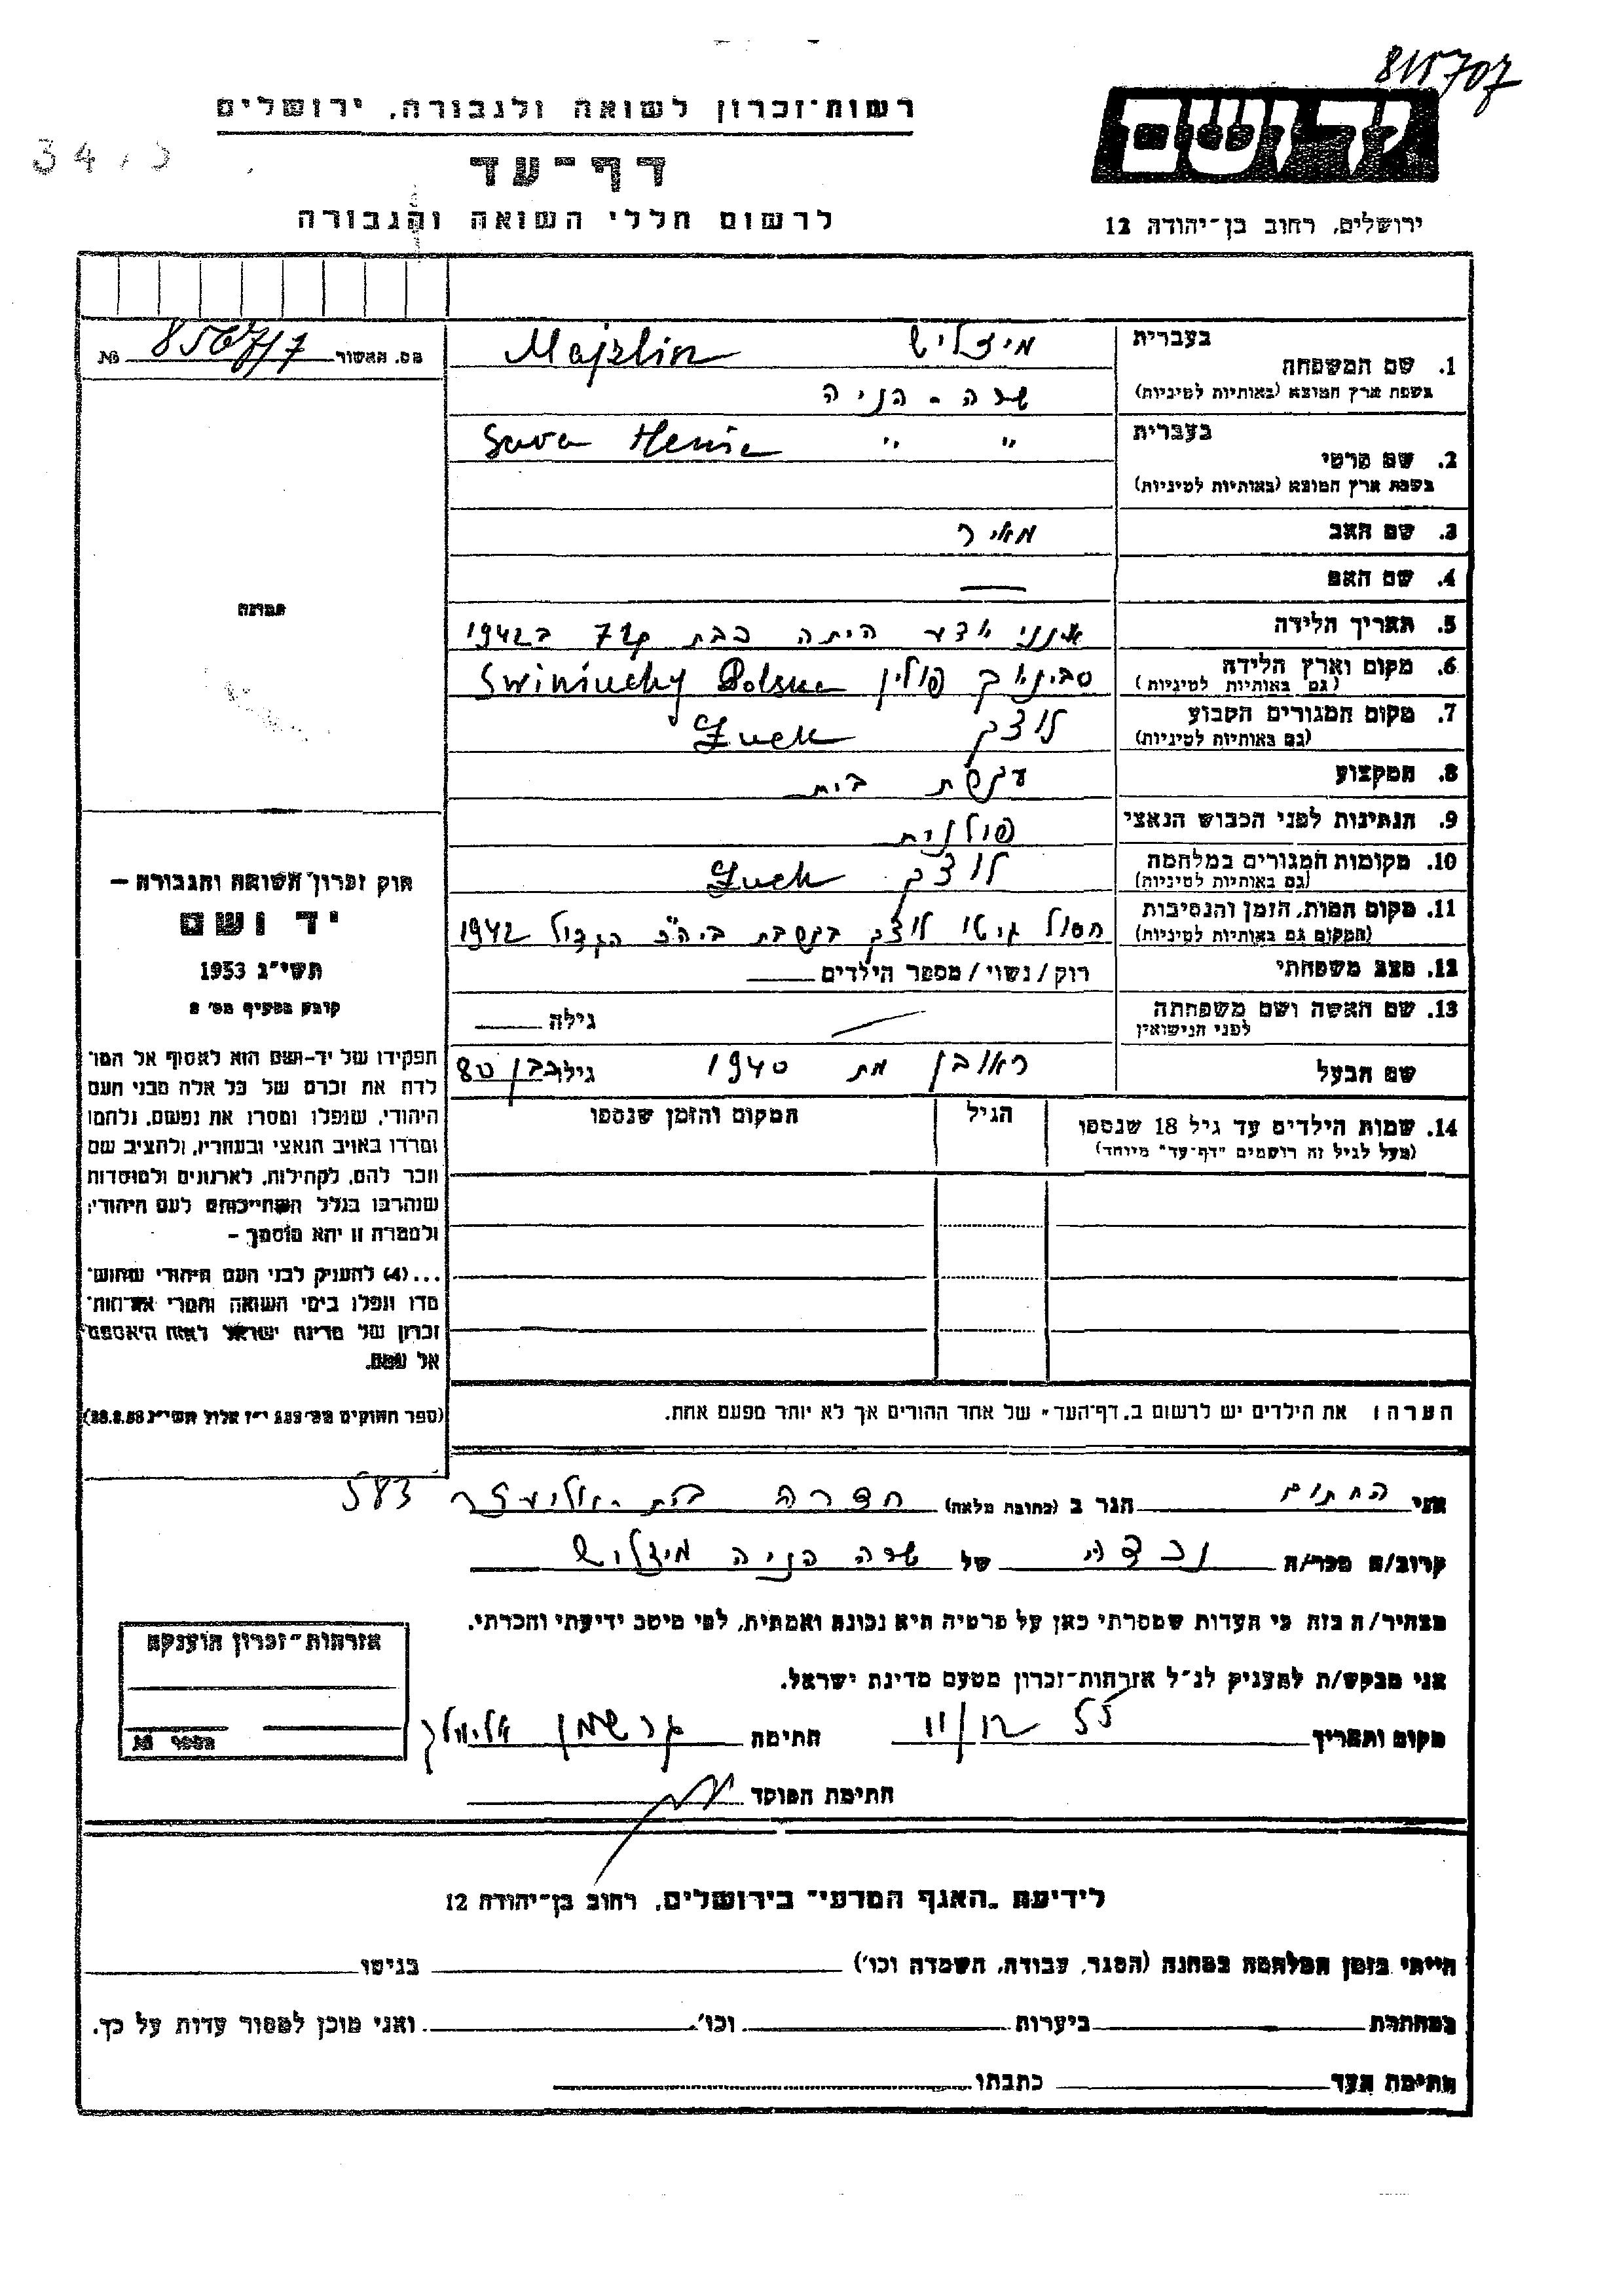 815707
רשות־זכרון לשואה ולגבורה, ירושלים
דף־עד
לרשום חללי השואה והגבורה
יד ושם
ירושלים, רחוב בן־יהודה 12
מס. האשור № 
בעברית
1. שם המשפחה
בשפת ארץ המוצא (באותיות לטיניות)
Majzlin
שרה - הניה
בעברית
2. שם פרטי
בשפת ארץ המוצא (באותיות לטיניות)
" " Sara Henia
3. שם האב מאיר
4. שם האם —
5. תאריך הלידה אינני יודע היתה כבת 72 ב 1942
6. מקום וארץ הלידה
(גם באותיות לטיניות)
פולין Swiniuchy Polska
7. מקום המגורים הקבוע
(גם באותיות לטיניות)
לוצק Łuck
8. המקצוע עקרת בית
9. הנתינות לפני הכבוש הנאצי פולנית
10. מקומות המגורים במלחמה
(גם באותיות לטיניות)
לוצק Łuck
11. מקום המות, הזמן והנסיבות
(המקום גם באותיות לטיניות)
חסול גיטו לוצק ביה"כ הגדול 1942
12. מצב משפחתי רוק/נשוי/מספר הילדים
13. שם האשה ושם משפחתה
לפני הנישואין
גילה
שם הבעל ראובן מת 1940 גילו בן 80
14. שמות הילדים עד גיל 18 שנספו
(מעל לגיל זה רושמים "דף־עד" מיוחד)
הגיל
המקום והזמן שנספו
הערה: את הילדים יש לרשום ב"דף־העד" של אחד ההורים אך לא יותר מפעם אחת.
תמונה
חוק זכרון השואה והגבורה —
יד ושם
תשי"ג 1953
קובע בסעיף מס' 2
תפקידו של יד־ושם הוא לאסוף אל המו־
לדת את זכרם של כל אלה מבני העם
היהודי, שנפלו ומסרו את נפשם, נלחמו
ומרדו באויב הנאצי ובעוזריו, ולהציב שם
וזכר להם, לקהילות, לארגונים ולמוסדות
שנחרבו בגלל השתייכותם לעם היהודי;
ולמטרה זו יהא מוסמך —
...(4) להעניק לבני העם היהודי שהוש־
מדו ונפלו בימי השואה והמרי אזרחות־
זכרון של מדינת ישראל לאות היאספם
אל עמם.
(ספר החוקים מס' 132 י"ז אלול תשי"ג 28.8.53)
אני החתום הגר ב (כתובת מלאה) חדרה בית אליעזר 583
קרוב/ה מכר/ה נכדה של שרה הניה
מצהיר/ה בזה כי העדות שמסרתי כאן על פרטיה היא נכונה ואמתית, לפי מיטב ידיעתי והכרתי.
אני מבקש/ת להעניק לנ"ל אזרחות־זכרון מטעם מדינת ישראל.
מקום ותאריך 11/12 55 חתימה אלימלך
חתימת הפוקד
אזרחות־זכרון הוענקה
מספר №
לידיעת "האגף המדעי" בירושלים, רחוב בן־יהודה 12
הייתי בזמן המלחמה במחנה (הסגר, עבודה, השמדה וכו') בגיטו
במחתרת ביערות וכו' ואני מוכן למסור עדות על כך.
חתימת העד כתבתו